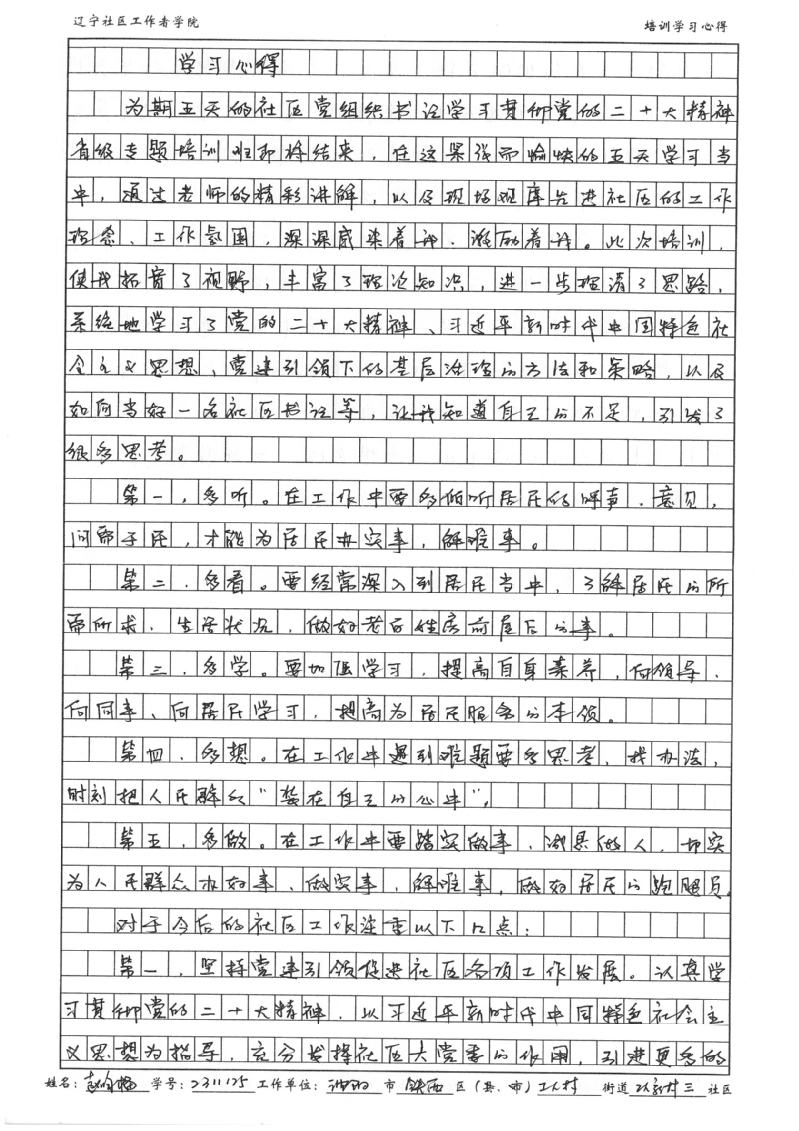 辽宁社区工作者学院
培训学习心得
学习心得
为期五天的社区党组织书记学习贯彻党的二十大精神
省级专题培训班即将结束，在这紧张而愉快的五天学习当
中，通过老师的精彩讲解，以及现场观摩先进社区的工作
理念、工作氛围，深深感染着我、激励着我。此次培训，
使我拓宽了视野，丰富了理论知识，进一步理清了思路，
系统地学习了党的二十大精神、习近平新时代中国特色社
会主义思想、党建引领下的基层治理的方法和策略，以及
如何当好一名社区书记等，让我知道自己的不足，引发了
很多思考。
第一，多听。在工作中要多倾听居民的呼声、意见，
问需于民，才能为居民办实事，解难事。
第二，多看。要经常深入到居民当中，了解居民的所
需所求、生活状况，做好老百姓房前屋后的事。
第三，多学。要加强学习，提高自身素养，向领导、
向同事、向居民学习，提高为居民服务的本领。
第四，多想。在工作中遇到难题要多思考，找办法，
时刻把人民群众“装在自己的心中”。
第五，多做。在工作中要踏实做事，诚恳做人，切实
为人民群众办好事、做实事，解难事，做好居民的跑腿员。
对于今后的社区工作注重以下几点：
第一，坚持党建引领促进社区各项工作发展。认真学
习贯彻党的二十大精神，以习近平新时代中国特色社会主
义思想为指导，充分发挥社区大党委的作用，引进更多的
姓名： 学号：2311125 工作单位：沈阳 市 铁西 区（县、市）工人村 街道 三 社区